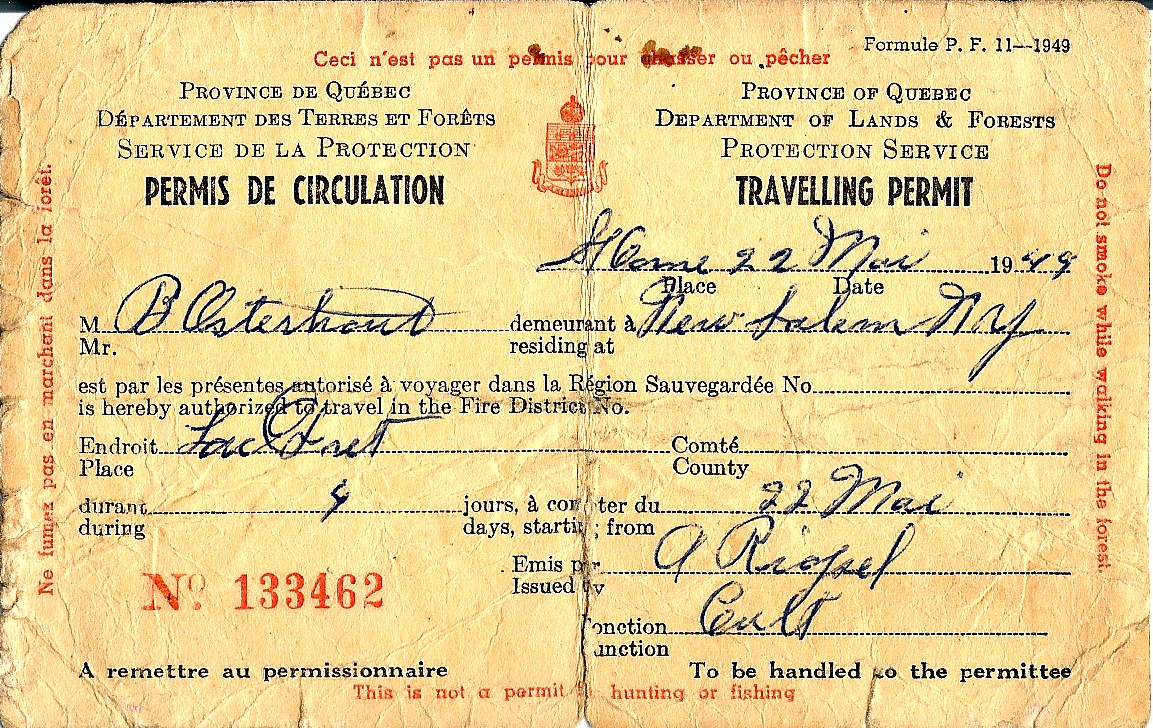 Formule P. F. 11—1949
Ceci n'est pas un permis pour chasser ou pêcher
PROVINCE DE QUÉBEC
DÉPARTEMENT DES TERRES ET FORÊTS
SERVICE DE LA PROTECTION
PERMIS DE CIRCULATION
PROVINCE OF QUEBEC
DEPARTMENT OF LANDS & FORESTS
PROTECTION SERVICE
TRAVELLING PERMIT
Ne fumez pas en marchant dans la forêt.
Do not smoke while walking in the forest.
22 Mai 1949
Place Date
M. B Osterhout demeurant à New Salem NY
Mr. residing at
est par les présentes autorisé à voyager dans la Région Sauvegardée No.
is hereby authorized to travel in the Fire District No.
Endroit Lac Comté
Place County
durant 4 jours, à compter du 22 Mai
during days, starting from
Emis par A Riopel
Issued by
Fonction Cult
Function
Nº 133462
A remettre au permissionnaire To be handled to the permittee
This is not a permit to hunting or fishing